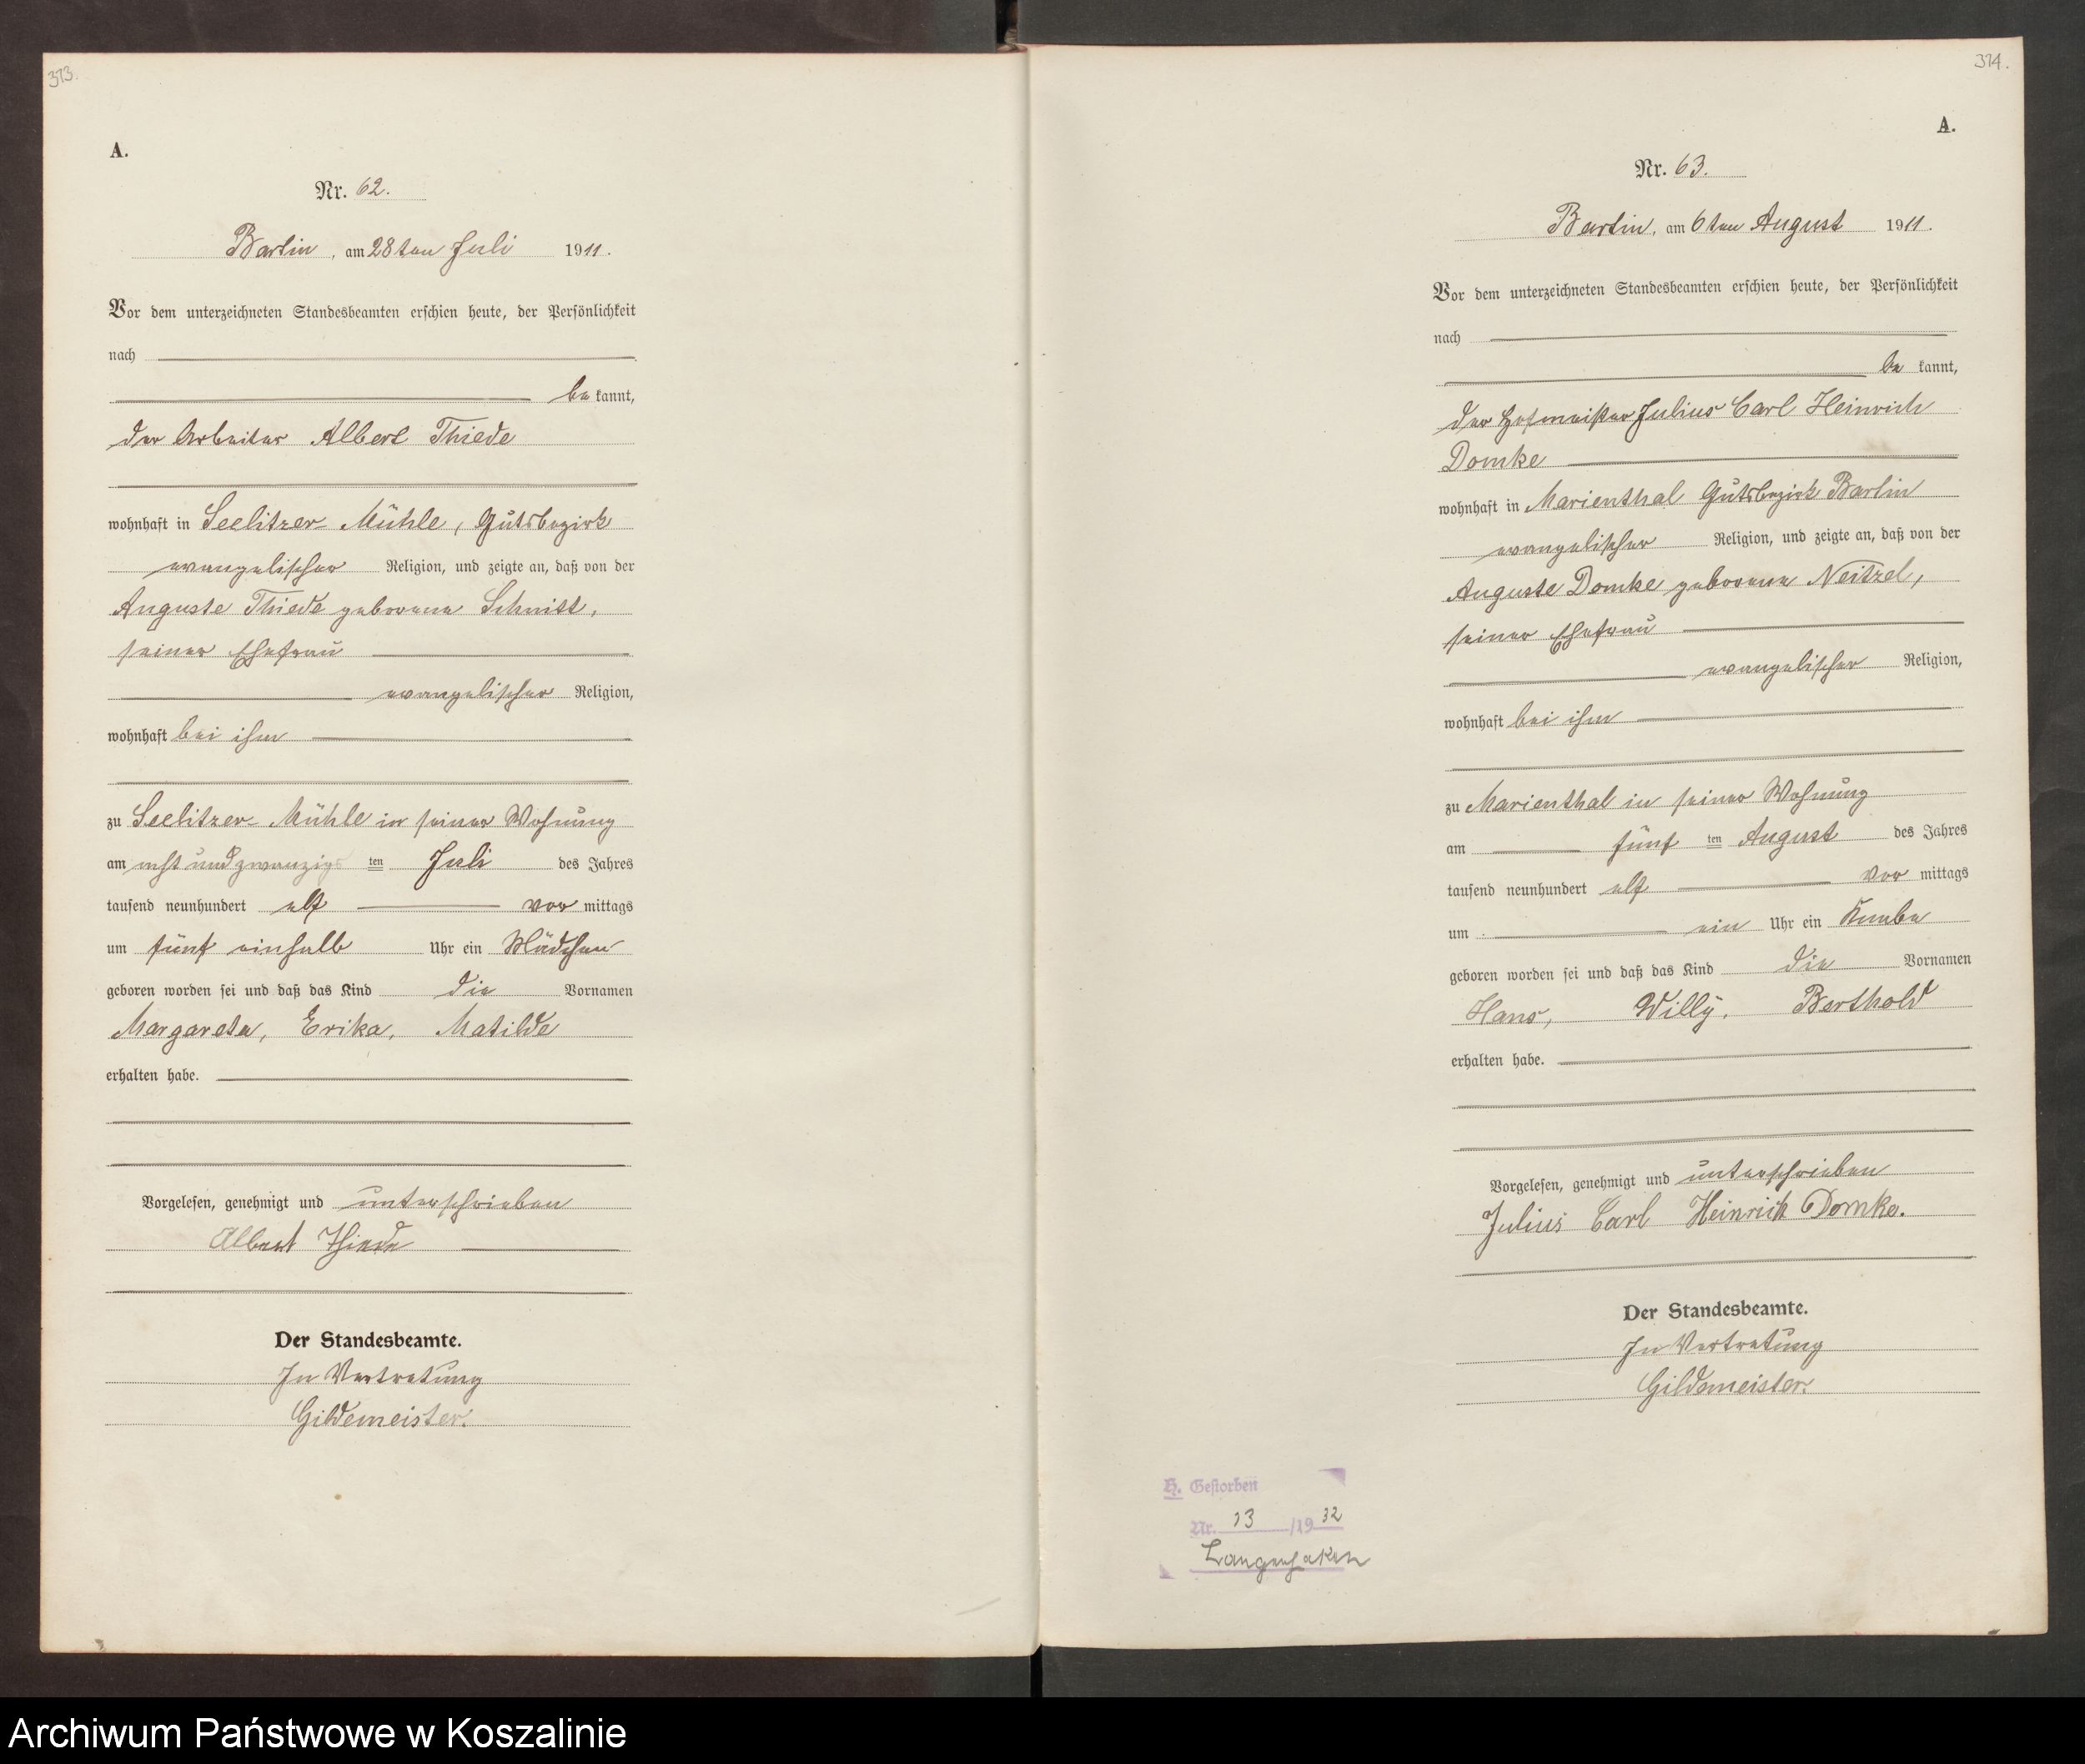 373.
A.
Nr. 62.
Bartin, am 28ten Juli 1911.
Vor dem unterzeichneten Standesbeamten erschien heute, der Persönlichkeit
nach
be kannt,
der Arbeiter Albert Thiede
wohnhaft in Seelitzer Mühle, Gutsbezirk
evangelischer Religion, und zeigte an, daß von der
Auguste Thiede geborene Schmitt,
seiner Ehefrau
evangelischer Religion,
wohnhaft bei ihm
zu Seelitzer-Mühle in seiner Wohnung
am acht und zwanzigs ten Juli des Jahres
tausend neunhundert elf vor mittags
um fünf einhalb Uhr ein Mädchen
geboren worden sei und daß das Kind die Vornamen
Margareta, Erika, Matilde
erhalten habe.
Vorgelesen, genehmigt und unterschrieben
Albert Thiede
Der Standesbeamte.
In Vertretung
Gildemeister.
374.
A.
Nr. 63.
Bartin, am 6ten August 1911.
Vor dem unterzeichneten Standesbeamten erschien heute, der Persönlichkeit
nach
be kannt,
der Hofmeister Julius Carl Heinrich
Domke
wohnhaft in Marienthal Gutsbezirk Bartin
evangelischer Religion, und zeigte an, daß von der
Auguste Domke geborene Neitzel,
seiner Ehefrau
evangelischer Religion,
wohnhaft bei ihm
zu Marienthal in seiner Wohnung
am fünf ten August des Jahres
tausend neunhundert elf vor mittags
um ein Uhr ein Knabe
geboren worden sei und daß das Kind die Vornamen
Hans, Willy, Berthold
erhalten habe.
Vorgelesen, genehmigt und unterschrieben
Julius Carl Heinrich Domke.
Der Standesbeamte.
In Vertretung
Gildemeister.
H. Gestorben
Nr. 13 /1932
Langenhaken
Archiwum Państwowe w Koszalinie